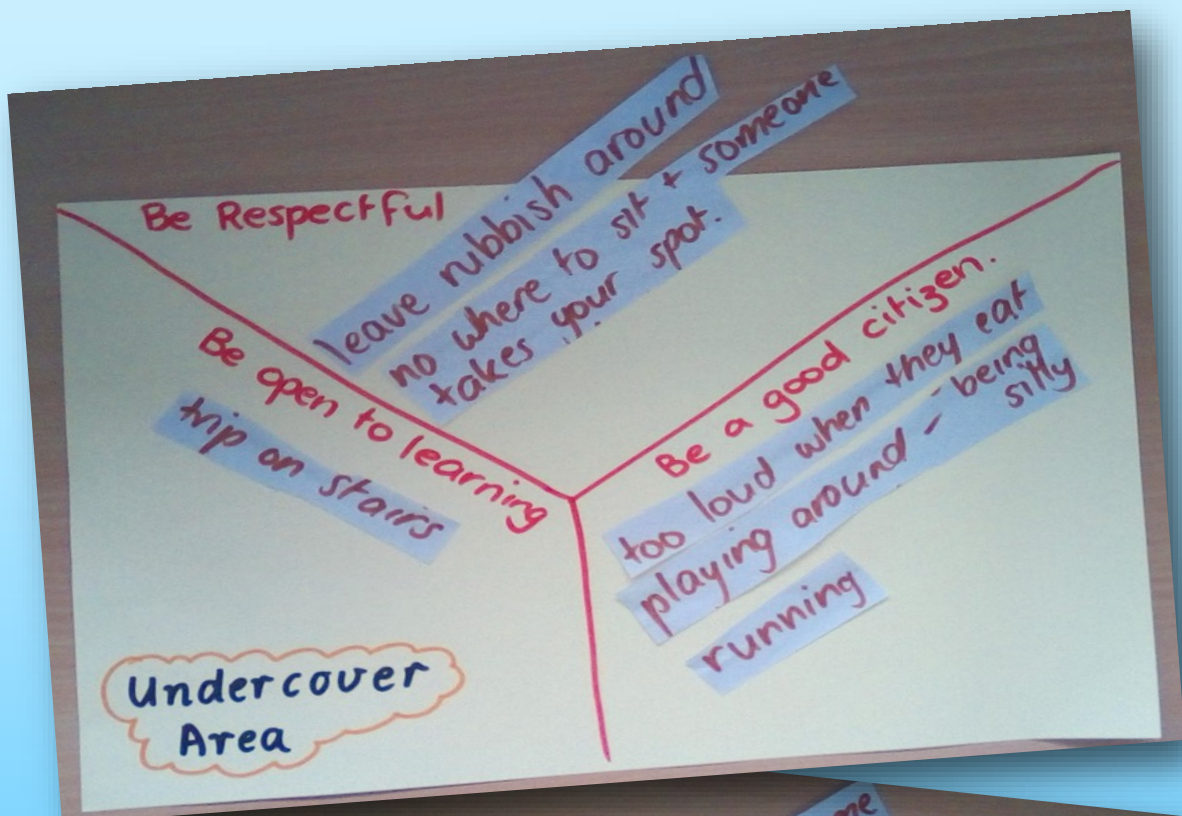 Be Respectful
leave rubbish around
no where to sit + someone
takes your spot.
Be open to learning
trip on stairs
Be a good citizen.
too loud when they eat
playing around - being
silly
running
Undercover
Area